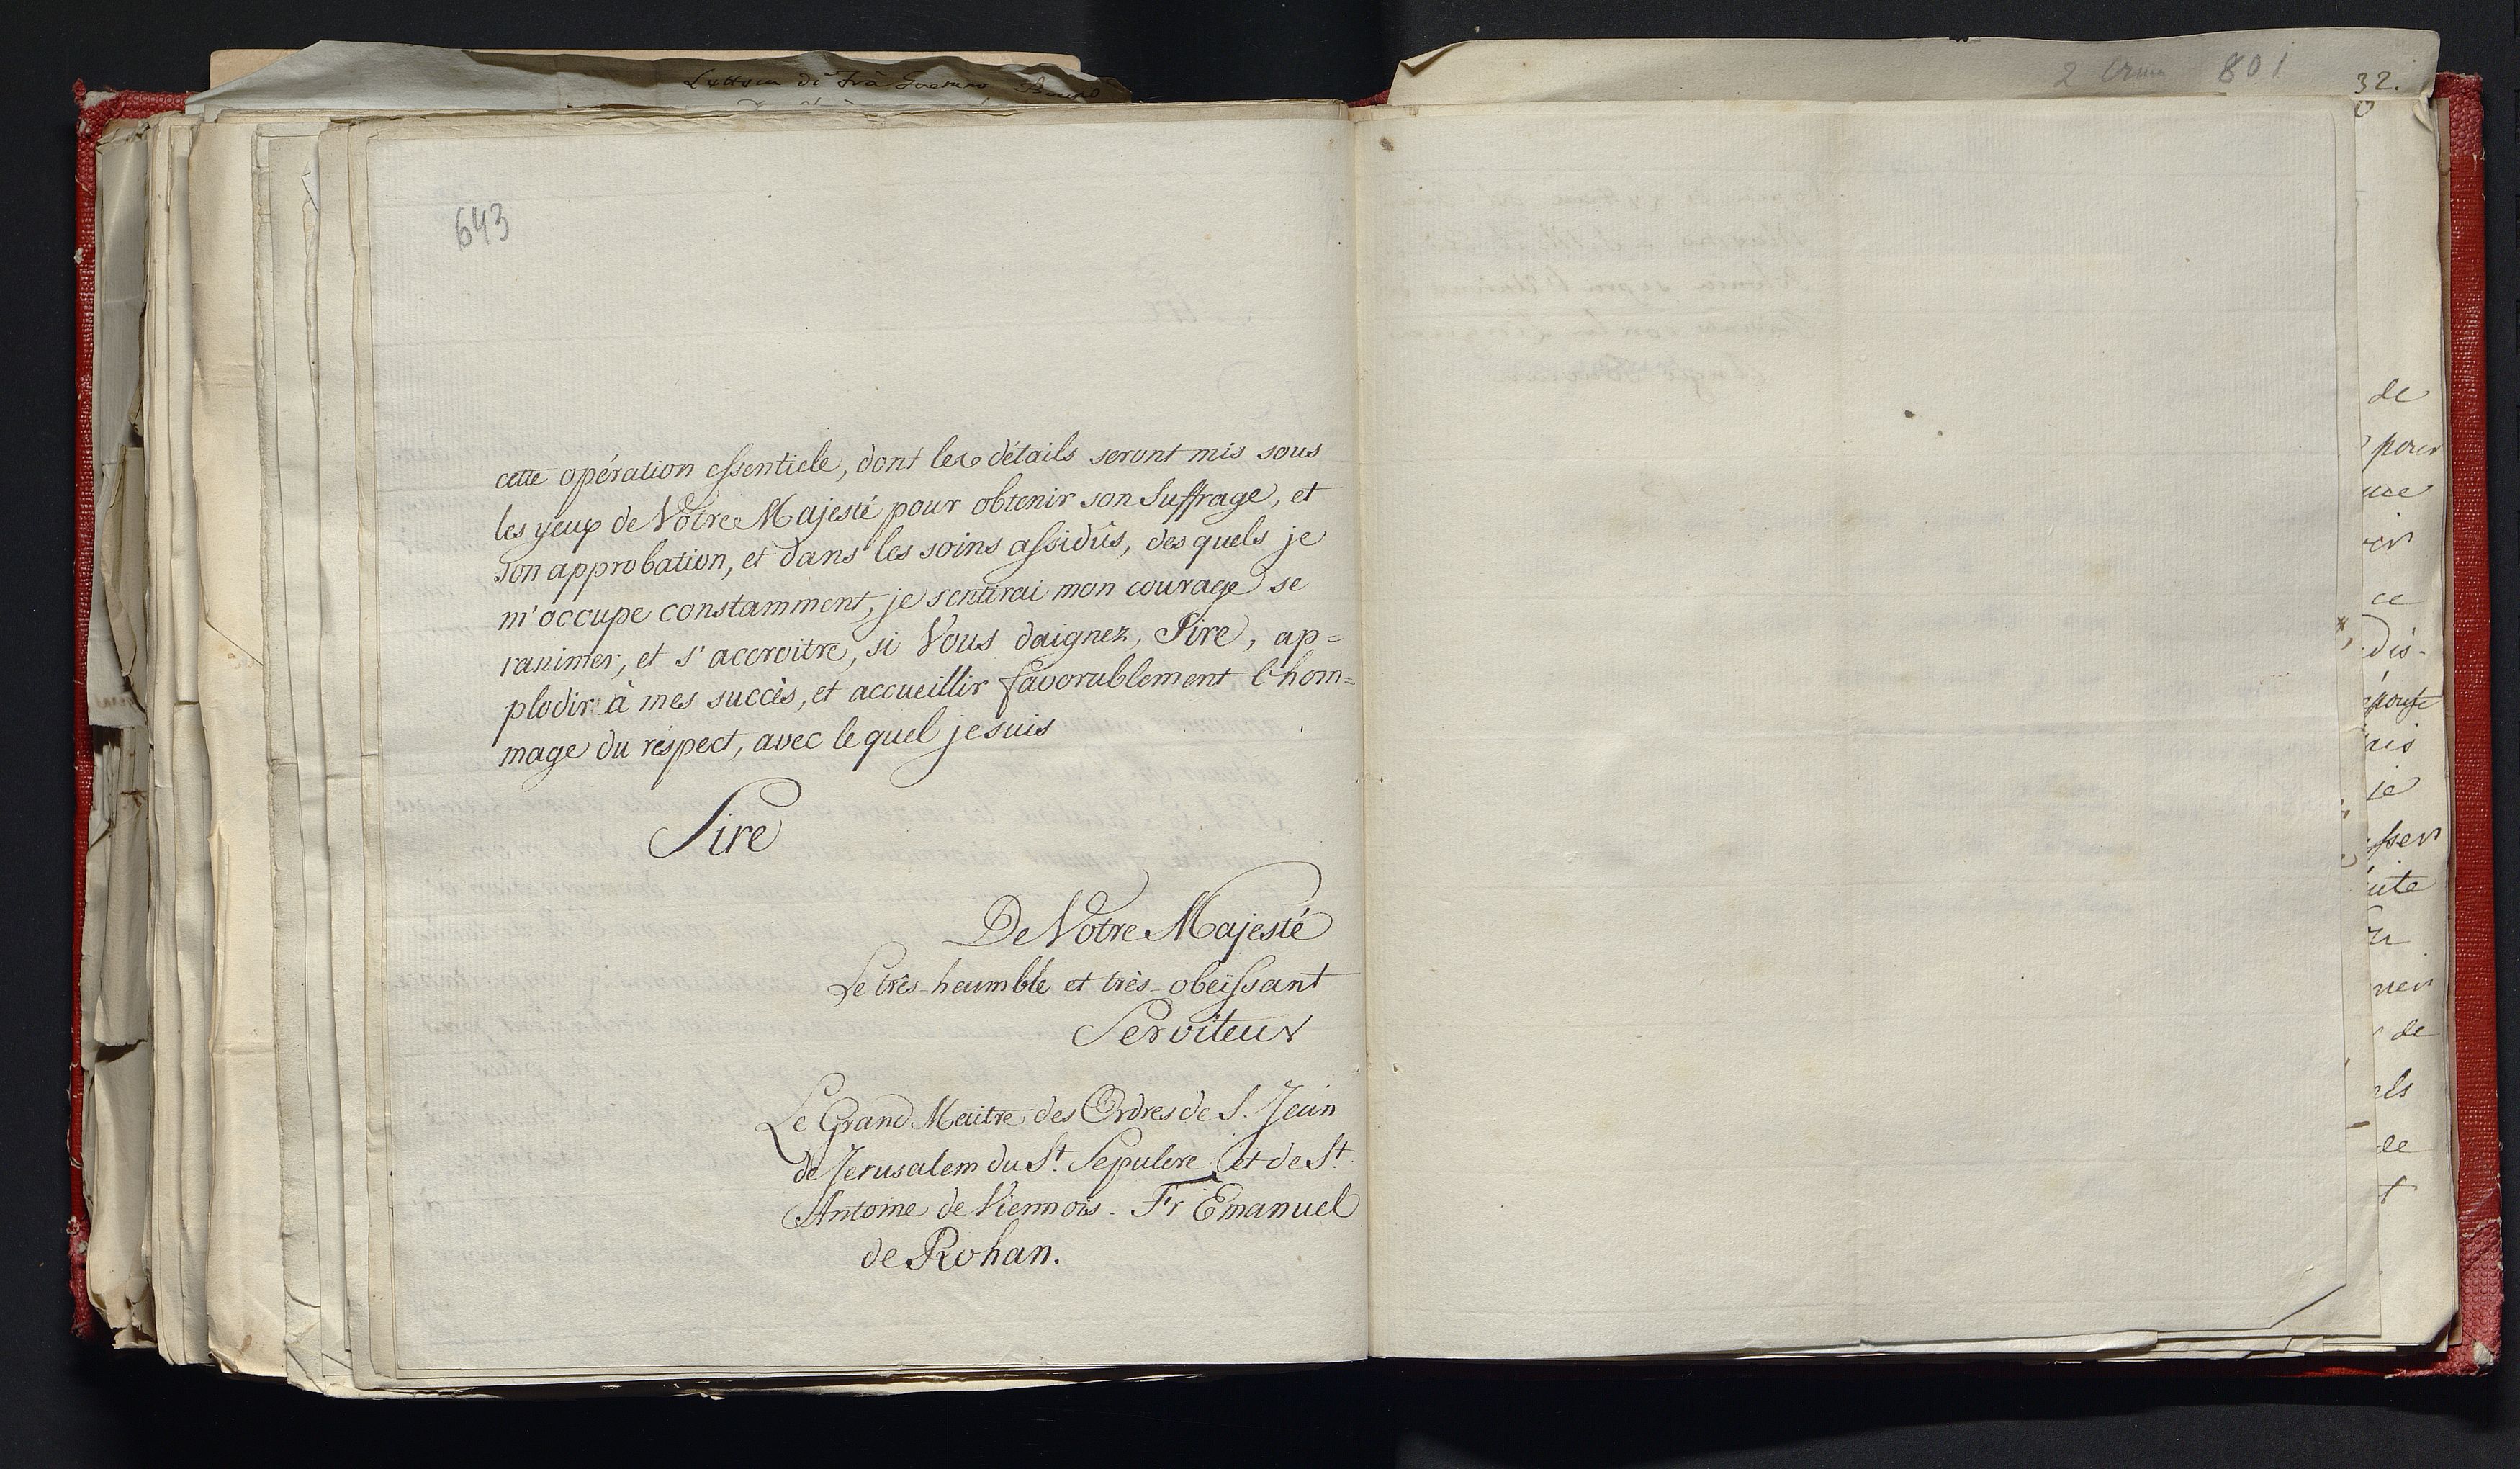 Lettera di frà Gaetano
2 801
32.
643
cette opération essentiele, dont les détails seront mis sous
les yeux de Votre Majesté pour obtenir son Suffrage, et
son approbation, et dans les soins assidûs, des quels je
m'occupe constamment, je sentirai mon courage se
ranimer, et s'accroitre, si Vous daignez, Sire, ap=
plodir à mes succès, et accueillir favorablement l'hom=
mage du respect, avec le quel je suis
Sire
De Votre Majesté
Le très-heumble et très-obeïssant
Serviteur
Le Grand Maitre des Ordres de S. Jean
de Jerusalem du St. Sepulcre et de St.
Antoine de Viennois. Fr Emanuel
de Rohan.
de
pour
ce
dis-
je
de
de